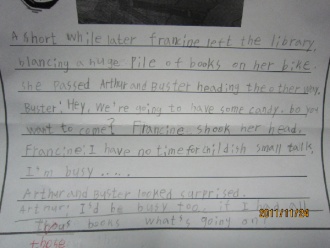 A short while later Francine left the library,
blancing a huge Pile of books on her bike.
She Passed Arthur and Buster heading the other way.
Buster: Hey, we're going to have some candy. Do you
want to come? Francine shook her head.
Francine: I have no time for childish small talks,
I'm busy.....
Arthur and Buster looked surprised.
Arthur: I'd be busy too, if I had all
books what's going on?
those
2011/11/26